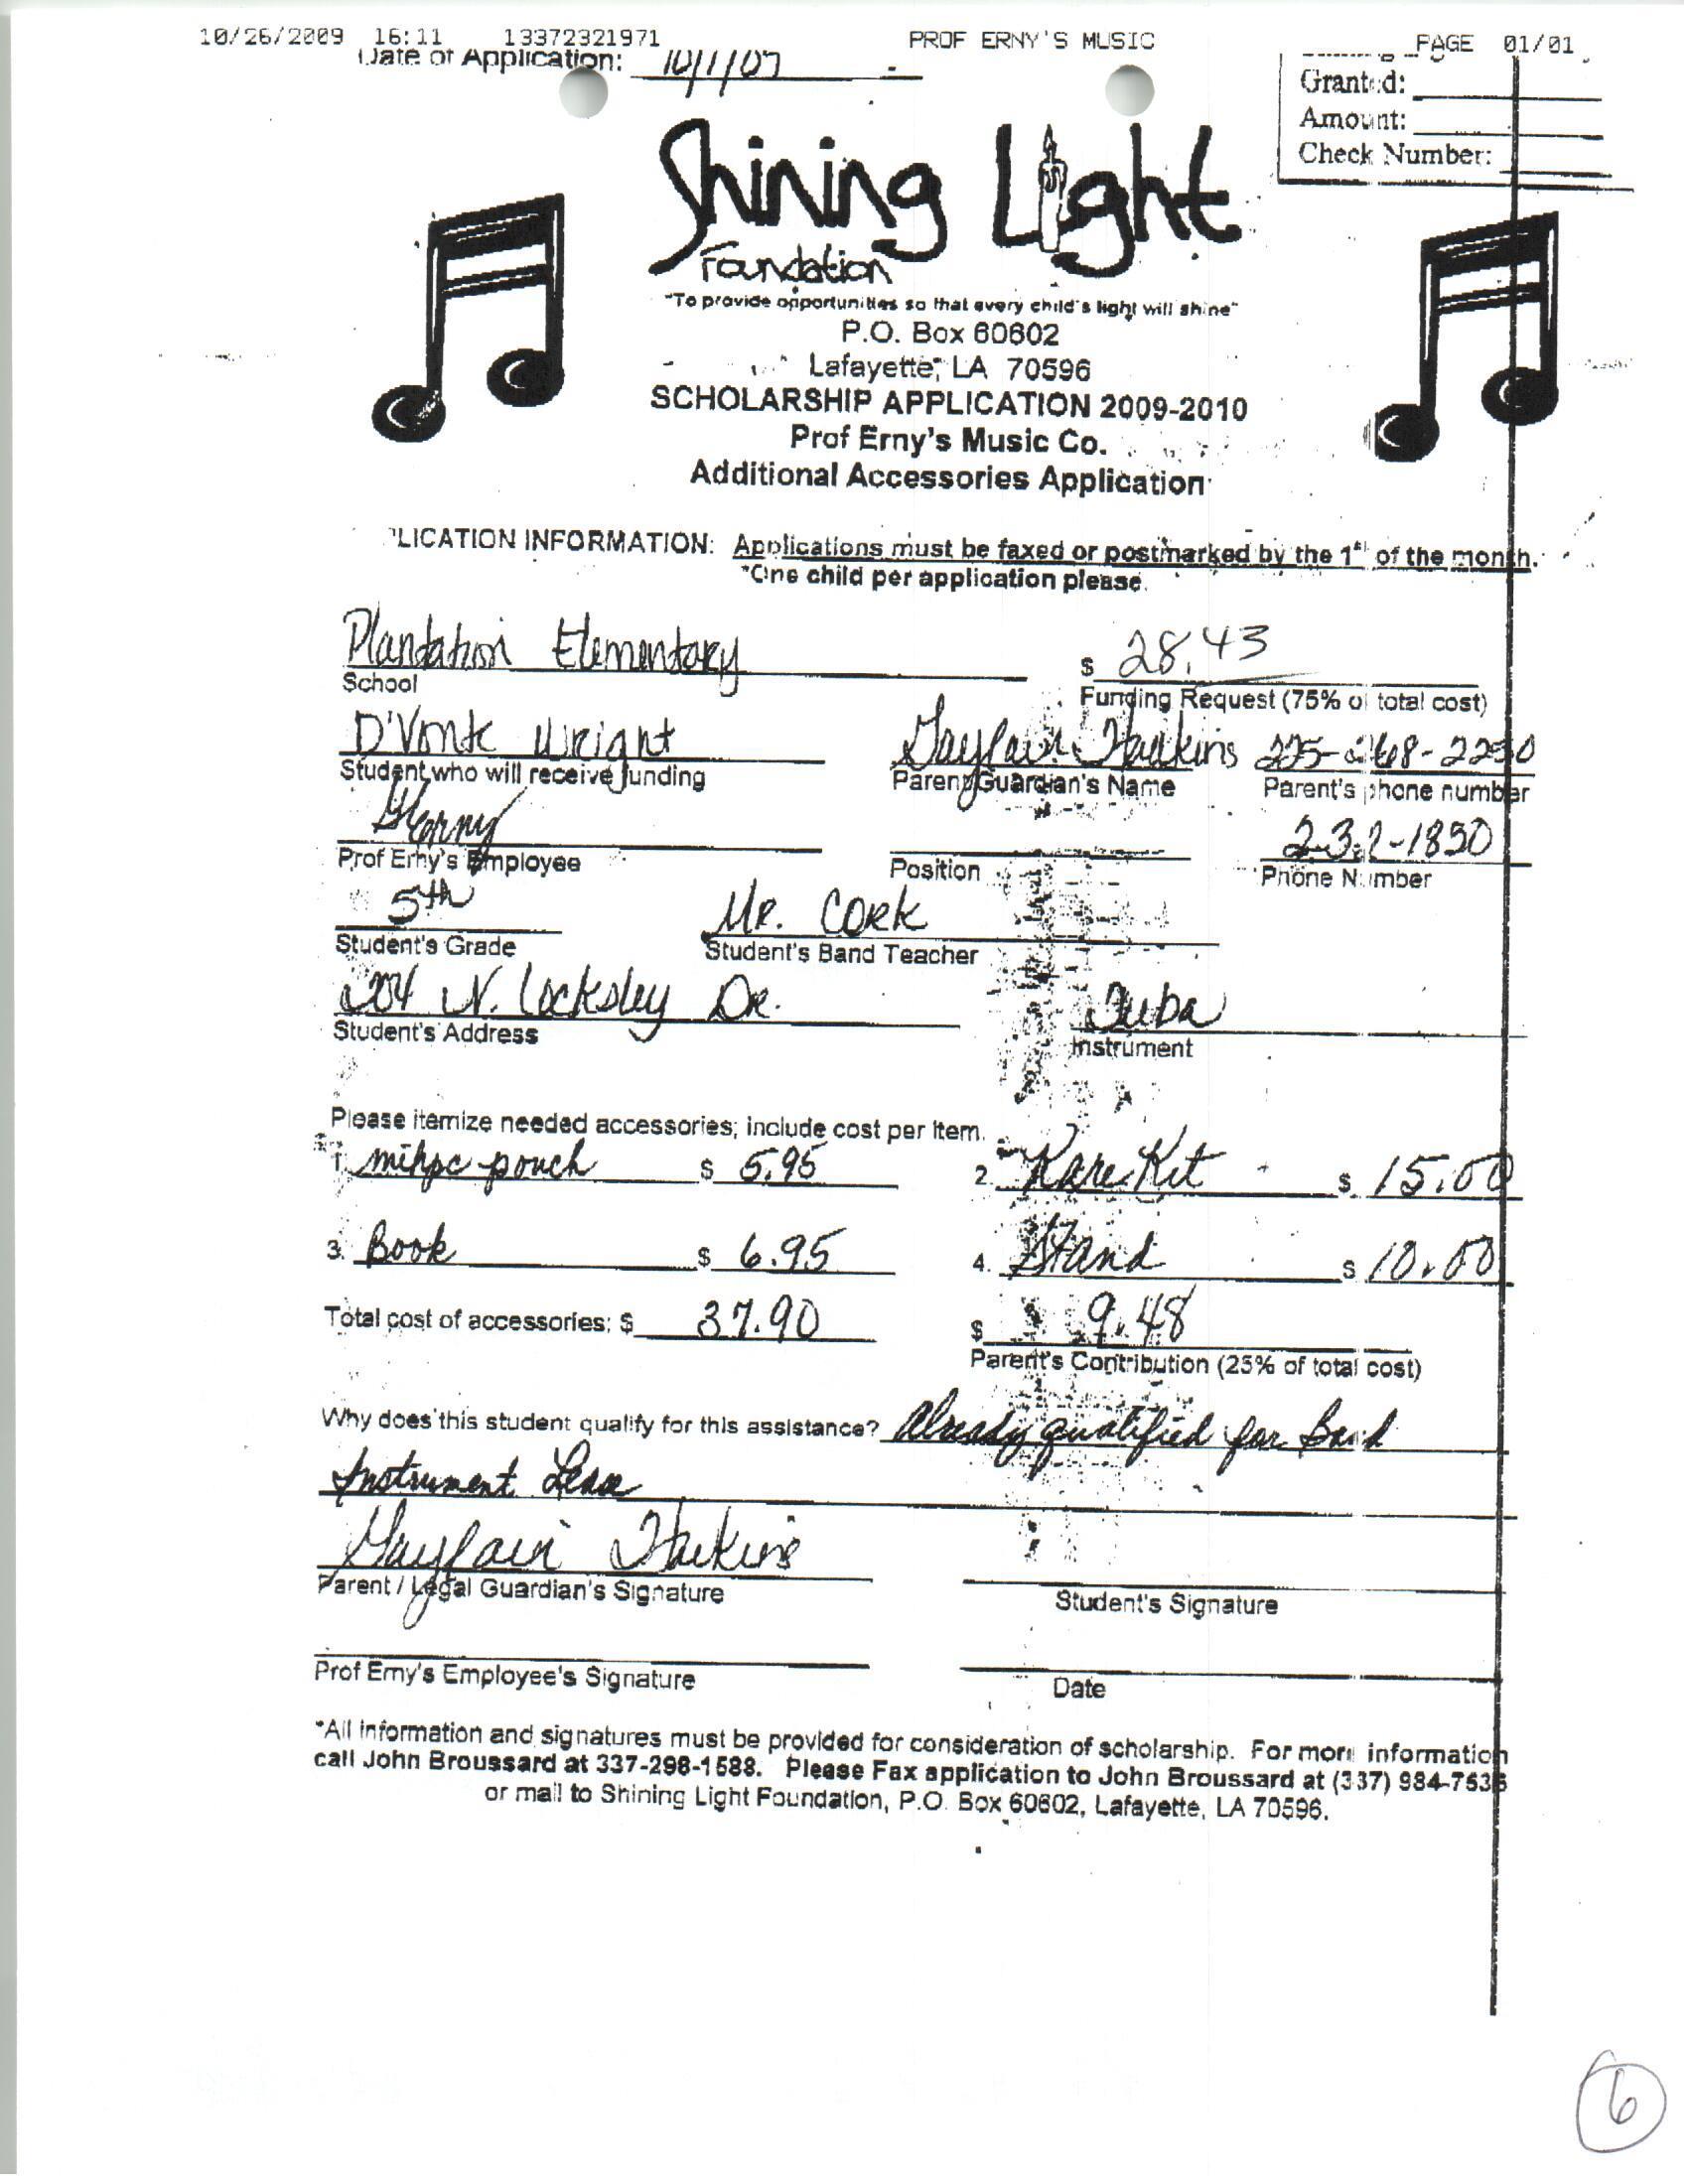 10/26/2009 16:11 13372321971 PROF ERNY'S MUSIC PAGE 01/01
Date of Application:
Granted:
Amount:
Check Number:
Shining Light
Foundation
"To provide opportunities so that every child's light will shine"
P.O. Box 60602
Lafayette, LA 70596
SCHOLARSHIP APPLICATION 2009-2010
Prof Erny's Music Co.
Additional Accessories Application
PLICATION INFORMATION: Applications must be faxed or postmarked by the 1st of the month.
*One child per application please.
Plantation Elementary $ 28.43
School Funding Request (75% of total cost)
D'Vonte Wright Hawkins
Student who will receive funding Parent/Guardian's Name Parent's phone number
232-1850
Prof Erny's Employee Position Phone Number
5th Mr. Cork
Student's Grade Student's Band Teacher
204 N. Locksley Dr. Tuba
Student's Address Instrument
Please itemize needed accessories; include cost per item.
1. pouch $ 5.95 2. Kare Kit $ 15.00
3. Book $ 6.95 4. Stand $ 10.00
Total cost of accessories: $ 37.90 $ 9.48
Parent's Contribution (25% of total cost)
Why does this student qualify for this assistance? Already qualified for Band
Instrument Lease
Hawkins
Parent / Legal Guardian's Signature Student's Signature
Prof Erny's Employee's Signature Date
*All information and signatures must be provided for consideration of scholarship. For more information
call John Broussard at 337-298-1588. Please Fax application to John Broussard at (337) 984-7536
or mail to Shining Light Foundation, P.O. Box 60602, Lafayette, LA 70596.
6